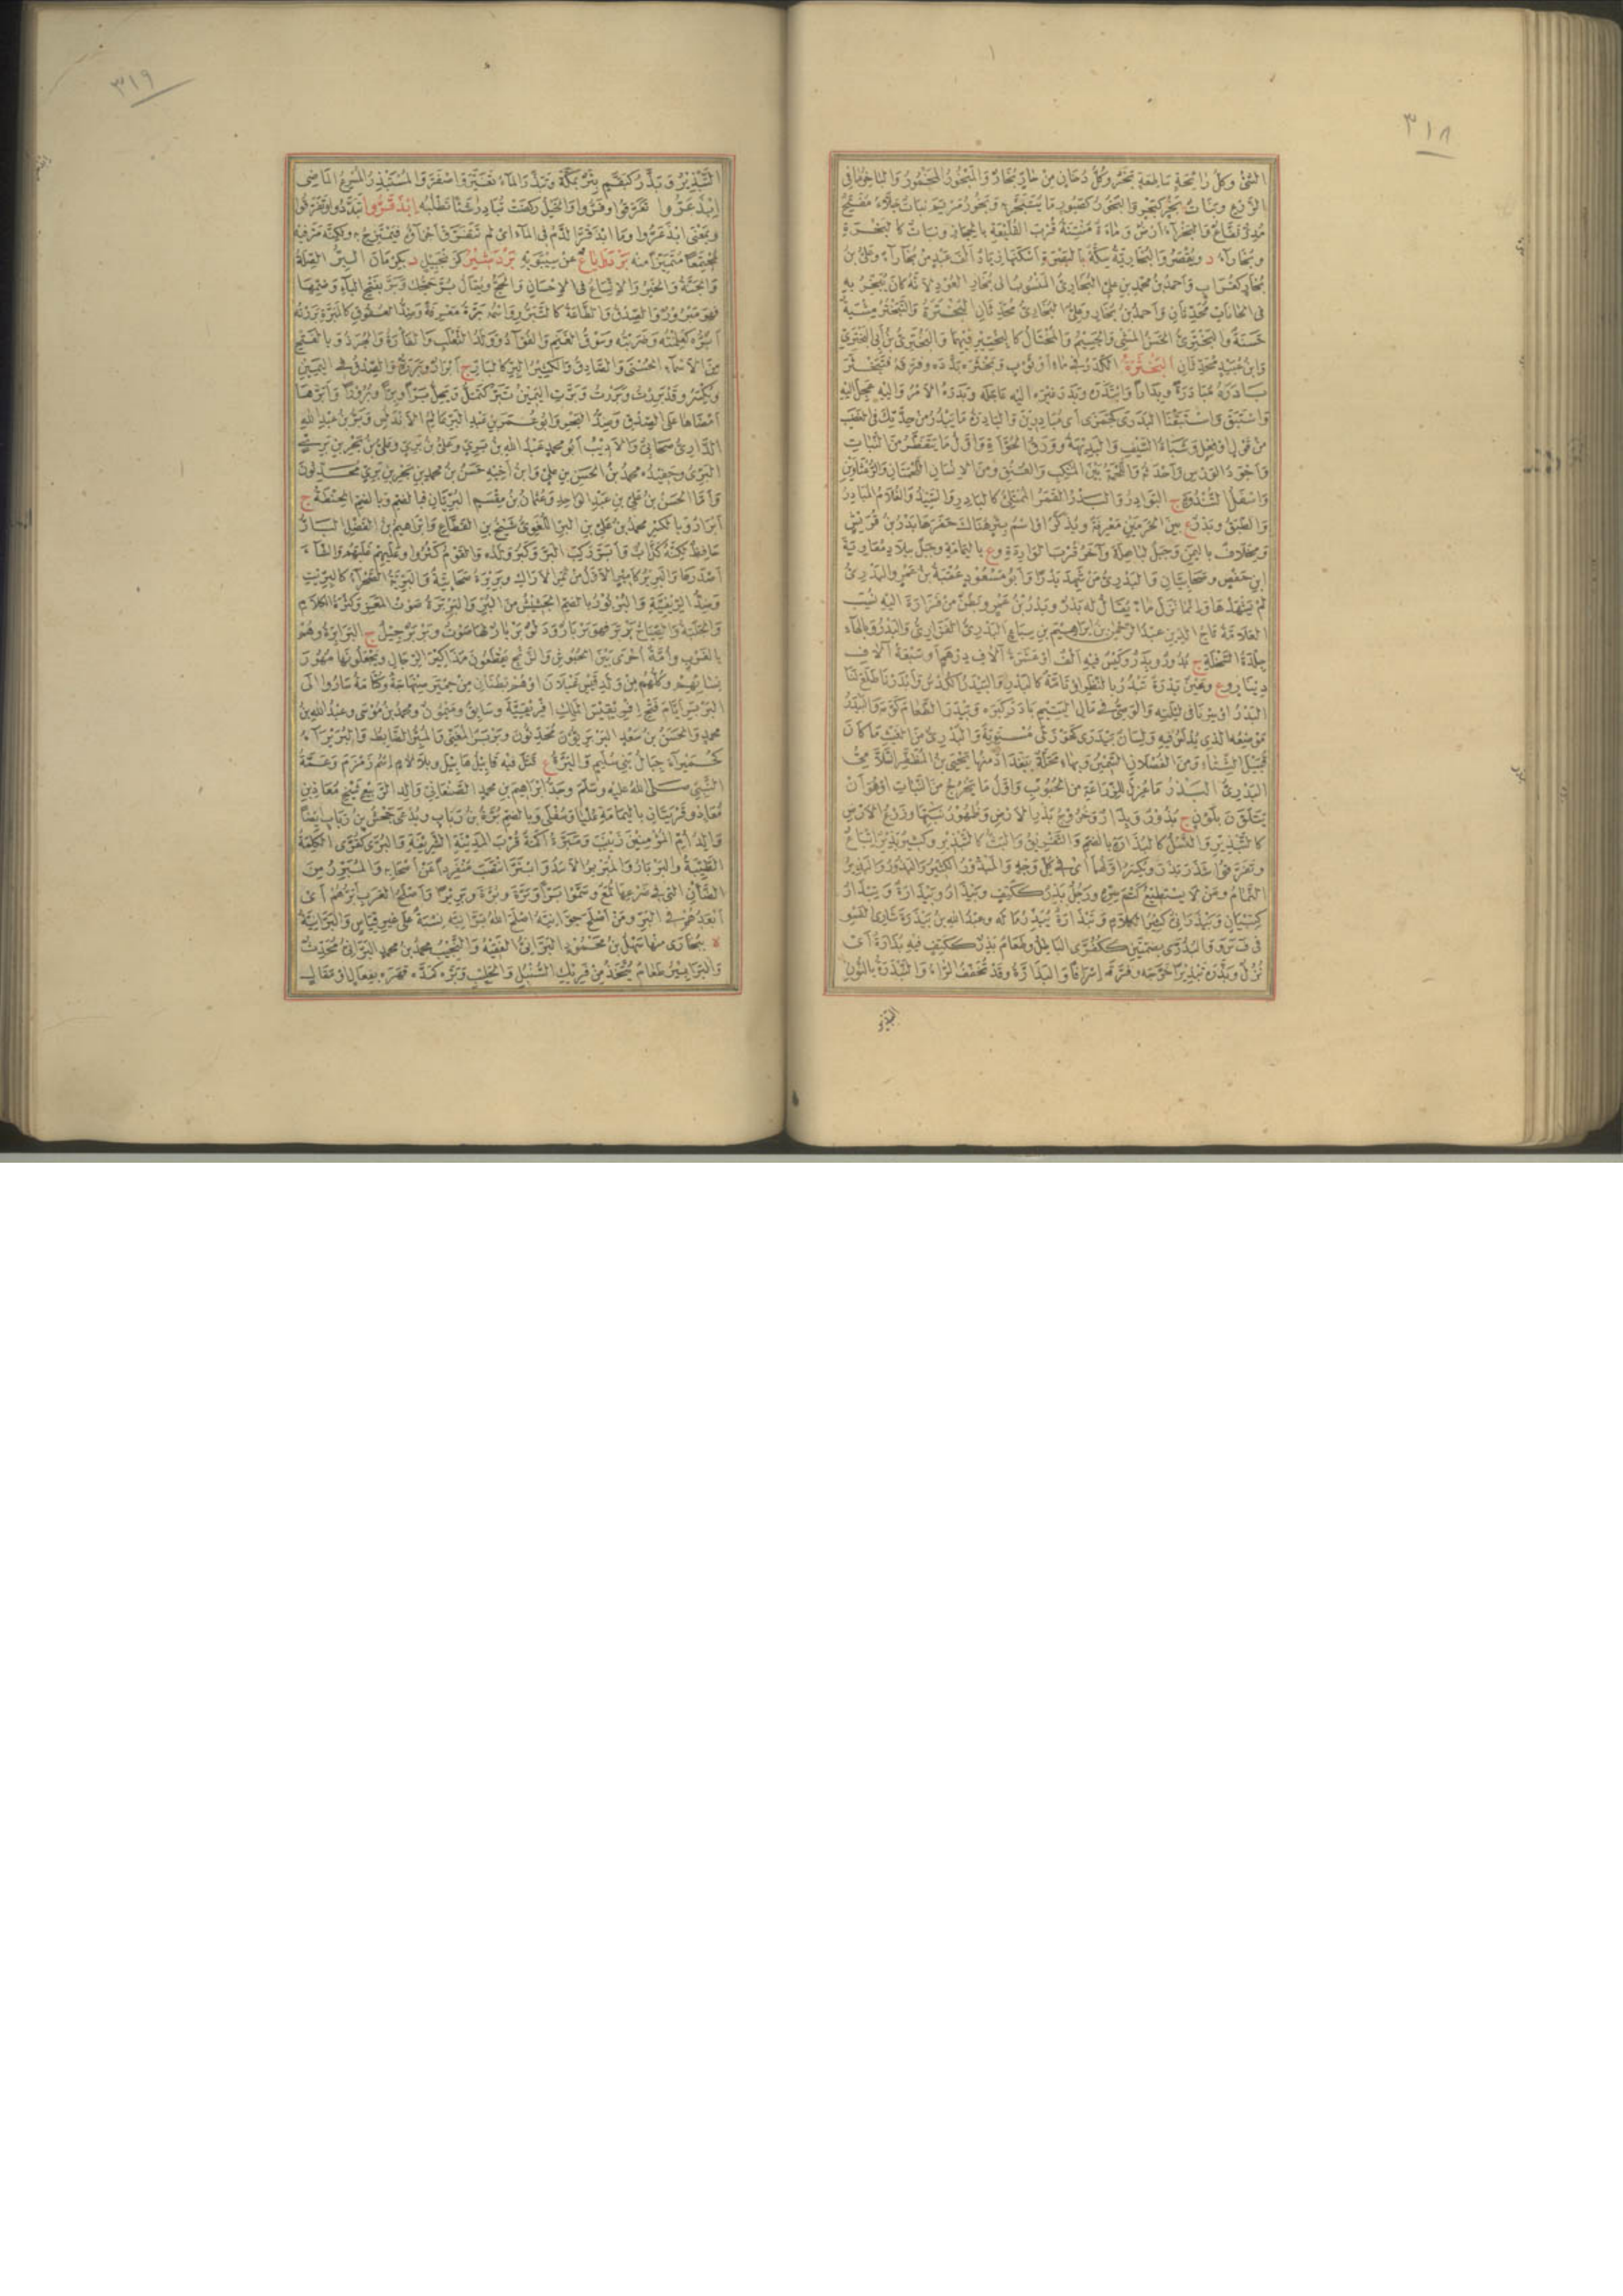 ٣١٨
النتن وكل رائحة ساطعة بخر وكل دخان من حار بخار والمبخور المخمور والباخر ساقي
الزرع وبنات بخر كبخر والبخور كصبور ما يتبخر به وبخور مريم نبات جلاء مفتح
مدر نفاع والبخراء أرض وماءة منتنة قرب القليعة بالحجاز ونبات كالبخرة
وبخاراء د ويقصر والبخارية سكة بالبصرة أسكنها زياد ألف عبد من بخاراء وعلي بن
بخار كغراب وأحمد بن محمد بن علي البخاري المنسوب الى بخار العود لأنه كان يبخر به
في الخانات محدثان وأحمد بن بخار وعلي البخاري محدثان البخترة والتبختر مشية
حسنة والبختري الحسن المشي والجسيم والمختال كالبختير فيهما والبختري بن أبي البختري
وابن عبيد محدثان البخثرة الكدر في ماء أو ثوب وبخثره بدده وفرقه فتبخثر
بادره مبادرة وبدارا وابتدره وبدر غيره اليه عاجله وبدره الأمر واليه عجل اليه
واستبق واستبقنا البدرى كجمزى أي مبادرين والبادرة ما يبدر من حدتك في الغضب
من قول أو فعل وشباة السيف والبديهة وورق الحواءة وأول ما يتفطر من النبات
وأجود الورس وأحدثه واللحمة بين المنكب والعنق ومن الإنسان اللحمتان فوق الرغثاوين
وأسفل الثندوة ج البوادر والبدر القمر الممتلئ كالبادر والسيد والغلام المبادر
والطبق وبدر ع بين الحرمين معرفة ويذكر أو اسم بئر هناك حفرها بدر بن قريش
ومخلاف باليمن وجبل لباهلة وآخر قرب الواردة و ع بالبادية وجبل ببلاد معاوية
ابن حفص وصحابيان والبدري من شهد بدرا وأبو مسعود عقبة بن عمرو البدري
لم يشهدها وإنما نزل ماء يقال له بدر وبدر بن عمرو بطن من فزارة اليه نسب
العلامة تاج الدين عبد الرحمن بن ابراهيم بن سباع البدري الفزاري والبدرة وبالهاء
جلدة السخلة ج بدور وبدر وكيس فيه ألف أو عشرة آلاف درهم أو سبعة آلاف
دينار و ع وعين بدرة تبدر بالنظر أو تامة كالبدر والبيدر الكدس وأبدرنا طلع لنا
البدر أو سرنا في ليلته والوصي في مال اليتيم بادر كبره وبيدر الطعام كومه والبيدر
موضعه الذي يداس فيه ولسان بيدرى كخوزلى مستوية والبدري من الغيث ما كان
قبيل الشتاء ومن الفصلان السمين وبهاء محلة ببغداد منها يحيى بن المظفر السلامي
البدري البذر ما عزل للزراعة من الحبوب وأول ما يخرج من النبات أو هو أن
يتلون بلون ج بذور وبذار وخروج بذر الأرض وظهور نبتها وزرع الأرض
كالتبذير والنسل كالبذارة بالضم والتفريق والبث كالتبذير وكثير بذير إتباع
وتفرقوا شذر بذر ويكسر أولهما أي في كل وجه والمبذور الكثير والبذور والبذير
النمام ومن لا يستطيع كتم سره ورجل بذر ككتف وبيذار وبيذارة وتبذار
كتبيان وبيذراني كثير الكلام وتبذارة يبذر ماله وعبد الله بن بيذرة شاري الفسو
في ف س و والبذرى بضمتين ككفرى الباطل وطعام بذر ككتف فيه بذارة أي
نزل وبذره تبذيرا خربه وفرقه إسرافا والبذارة وقد تخفف الراء والنبذرة بالنون
التبذير
٣١٩
التبذير وبذر كبقم بئر بمكة وتبذر الماء تغير واصفر والمستبذر المسرع الماضي
ابذعروا تفرقوا وفروا والخيل ركضت تبادر شيئا تطلبه ابذقروا تبددوا وتفرقوا
وبمعنى ابذعروا وما ابذقر الدم في الماء أي لم تتفرق أجزاؤه فيمتزج به ولكنه مر فيه
مجتمعا متميزا منه بردرايا ع عن سيبويه بردشير كزنجبيل د بكرمان البر الصلة
والجنة والخير والاتساع في الإحسان والحج ويقال بر حجك وبر بفتح الباء وضمها
فهو مبرور والصدق والطاعة كالتبرر واسمه برة معرفة وضد العقوق كالمبرة بررته
أبره كعلمته وضربته وسوق الغنم والفؤاد وولد الثعلب والفأرة والجرذ وبالفتح
من الأسماء الحسنى والصادق والكثير البر كالبار ج أبرار وبررة والصدق في اليمين
ويكسر وقد بررت وبررت وبرت اليمين تبر كتمل وتحل برا وبرا وبرورا وأبرها
أمضاها على الصدق وضد البحر وأبو عمر بن عبد البر عالم الأندلس وبر بن عبد الله
الداري صحابي والأديب أبو محمد عبد الله بن بري وعلي بن بري وعلي بن بحر بن بري
البري وحفيده محمد بن الحسن بن علي وابن أخيه حسن بن محمد بن بحر بن بري محدثون
وأما الحسن بن علي بن عبد الواحد وعثمان بن مقسم البريان فبالضم وبالضم الحنطة ج
أبرار وبالكسر محمد بن علي بن البر اللغوي شيخ بن القطاع وابراهيم بن الفضل البار
حافظ لكنه كذاب وأبر ركب البر وكثر ولده والقوم كثروا وعليهم غلبهم والشاء
أصدرها والبرير كأمير الأول من ثمر الأراك وبريرة صحابية والبرية الصحراء كالبريت
وضد الريفية والبربور بالضم الجشيش من البر والبربرة صوت المعز وكثرة الكلام
والجلبة والصياح بربر فهو بربار ودلو بربار لها صوت وبربر جيل ج البرابرة وهم
بالغرب وأمة أخرى بين الحبوش والزنج يقطعون مذاكير الرجال ويجعلونها مهور
نسائهم وكلهم من ولد قيس عيلان أو هم بطنان من حمير صنهاجة وكتامة صاروا الى
البربر أيام فتح افريقس الملك افريقية وسابق وميمون ومحمد بن موسى وعبد الله بن
محمد والحسن بن سعد البربريون محدثون وبربر المغني والمبر الضابط والبربراء
كحميراء جبال بني سليم والبرة ع قتل فيه قابيل هابيل وبلا لام اسم زمزم وعمة
النبي صلى الله عليه وسلم وجد ابراهيم بن محمد الصنعاني والد الربيع شيخ معاذ بن
معاذ وقريتان باليمامة عليا وسفلى وبالضم برة بن رباب ويدعى جحش بن رباب أيضا
والد أم المؤمنين زينب ومبرة أكمة قرب المدينة الشريفة والبرى كقرى الكلمة
الطيبة والبربار والمبربر الأسد وابتر انتصب منفردا عن أصحابه والمبرر من
الضأن التي في ضرعها لمع وسموا برا وبرة وبرة وبريرا وأصلح العرب أبرهم أي
أبعدهم في البر ومن أصلح جوانيه أصلح الله برانيه نسبة على غير قياس والبرانية
ة ببخارى منها سهل بن محمود البراني الفقيه والنجيب محمد بن محمد البراني محدث
والبرابير طعام يتخذ من فريك السنبل والحليب وبره كمده قهره بفعال أو مقال